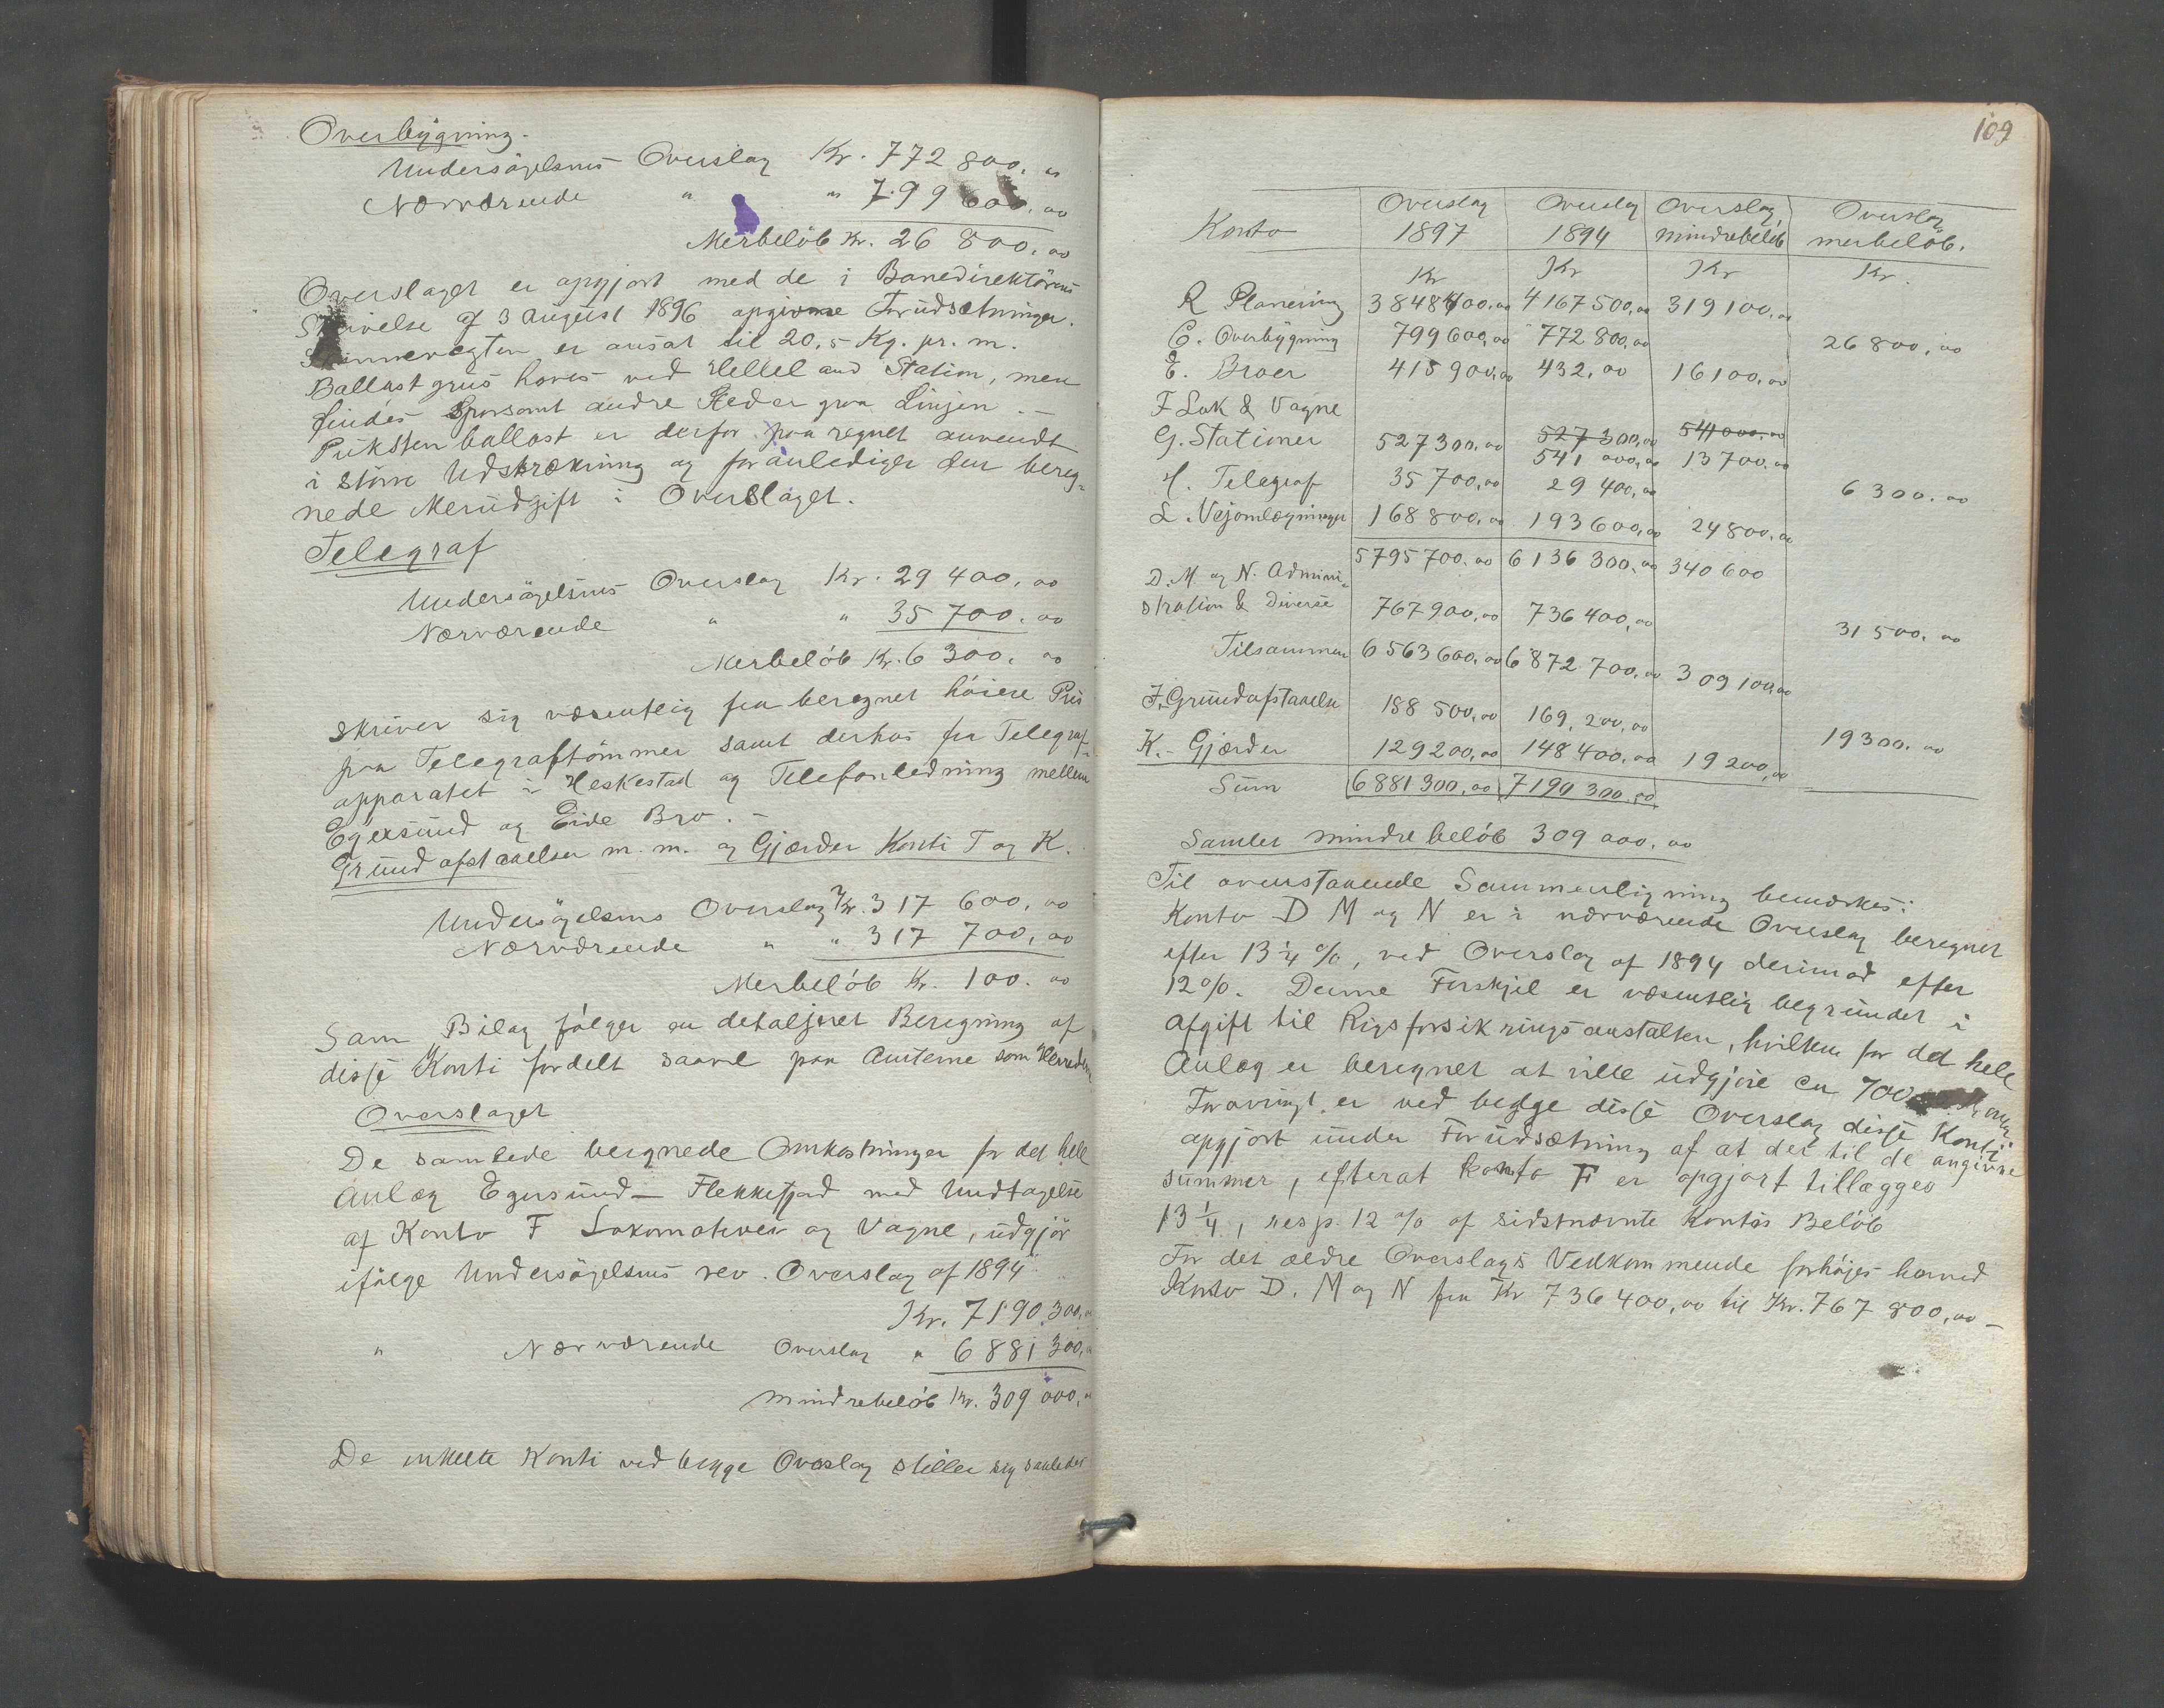 Overbygning.
Undersögelsens Overslag Kr. 772 800. "
Nærværende " " 799 600. oo
Merbelöb Kr. 26 800. oo
Overslaget er opgjort med de i Banedirektörens
Skrivelse af 3 august 1896 opgivne Forudsetninger.
Skinnevegten er ansat til 20,5 Kg. pr. m.
Ballast grus haves ved Helleland Station, men
findes sparsomt andre Steder paa Linjen. –
Pukstenballast er derfor paaregnet anvendt
i större Udstrækning og foranlediger den bereg-
nede Merudgift i Overslaget.
Telegraf
Undersögelsens Overslag Kr. 29 400. oo
Nærværende " " 35 700. oo
Merbelöb Kr. 6 300. oo
skriver sig væsentlig fra beregnet höiere Pris
paa Telegraftömmer samt derhos for Telegraf-
apparatet i Heskestad og Telefonledning mellem
Egersund og Eide Bro. –
Grundafstaaelser m. m. og Gjærder Konti J og K.
Undersögelsens Overslag Kr. 317 600. oo
Nærværende " " 317 700. oo
Merbelöb Kr. 100. oo
Som Bilag fölger en detaljeret Beregning af
disse Konti fordelt saavel paa Amterne som Herrederne
Overslaget
De samlede beregnede Omkostninger for det hele
Anlæg Egersund – Flekkefjord med Undtagelse
af Konto F Lokomotiver og Vagne, udgjör
ifölge Undersögelsens rev. Overslag af 1894
Kr. 7190 300,
" Nærværende Overslag " 6 881 300,
Mindrebelöb Kr. 309 000,
De enkelte Konti ved begge Overslag stiller sig saaledes
109
Konto Overslag 1897 Overslag 1894 Overslag, mindrebelöb Overslag merbelöb.
Kr Kr Kr Kr.
R Planering 3848400.oo 4167500,oo 319100.oo
C. Overbygning 799600,oo 772800,oo 26800,oo
E. Broer 415900,oo 432,oo 16100.oo
F Lok & Vagne
G. Stationer 527300.oo 527300,oo 541000.oo
541 000,oo 13700.oo
H. Telegraf 35700,oo 29400,oo 6300.oo
L. Vejomlægninger 168800.oo 193600,oo 24800.oo
5795700.oo 6136300.oo 340600
D. M. og N. Admini-
stration & Diverse 767900,oo 736400,oo 31500.oo
Tilsammen 6563600,oo 6872700,oo 309100,oo
J. Grundafstaaelse 188500,oo 169,200,oo 19300.oo
K. - Gjærder 129200,oo 148400.oo 19200,oo
Sum 6881300,oo 7190300.oo
Samlet mindrebelöb 309 000. oo
Til ovenstaaende Sammenligning bemærkes:
Konto D M og N er i nærværende Overslag beregnet
efter 13 1/4 %, ved Overslag af 1894 derimod efter
12%. Denne Forskjel er væsentlig begrundet i
afgift til Rigsforsikringsanstalten, hvilken for det hele
Anlæg er beregnet at ville udgjöre ca 700
Forövrigt er ved begge disse Overslag disse Konti
opgjort under Forudsætning af at det til de angivne
summer, efterat Konto F er opgjort tillægges
13 1/4, resp. 12 % af sidstnævnte Kontos Belöb
For det ældre Overslags Vedkommende forhöjes herved
Konto D. M og N fra Kr 736 400,oo til Kr. 767 800,oo –